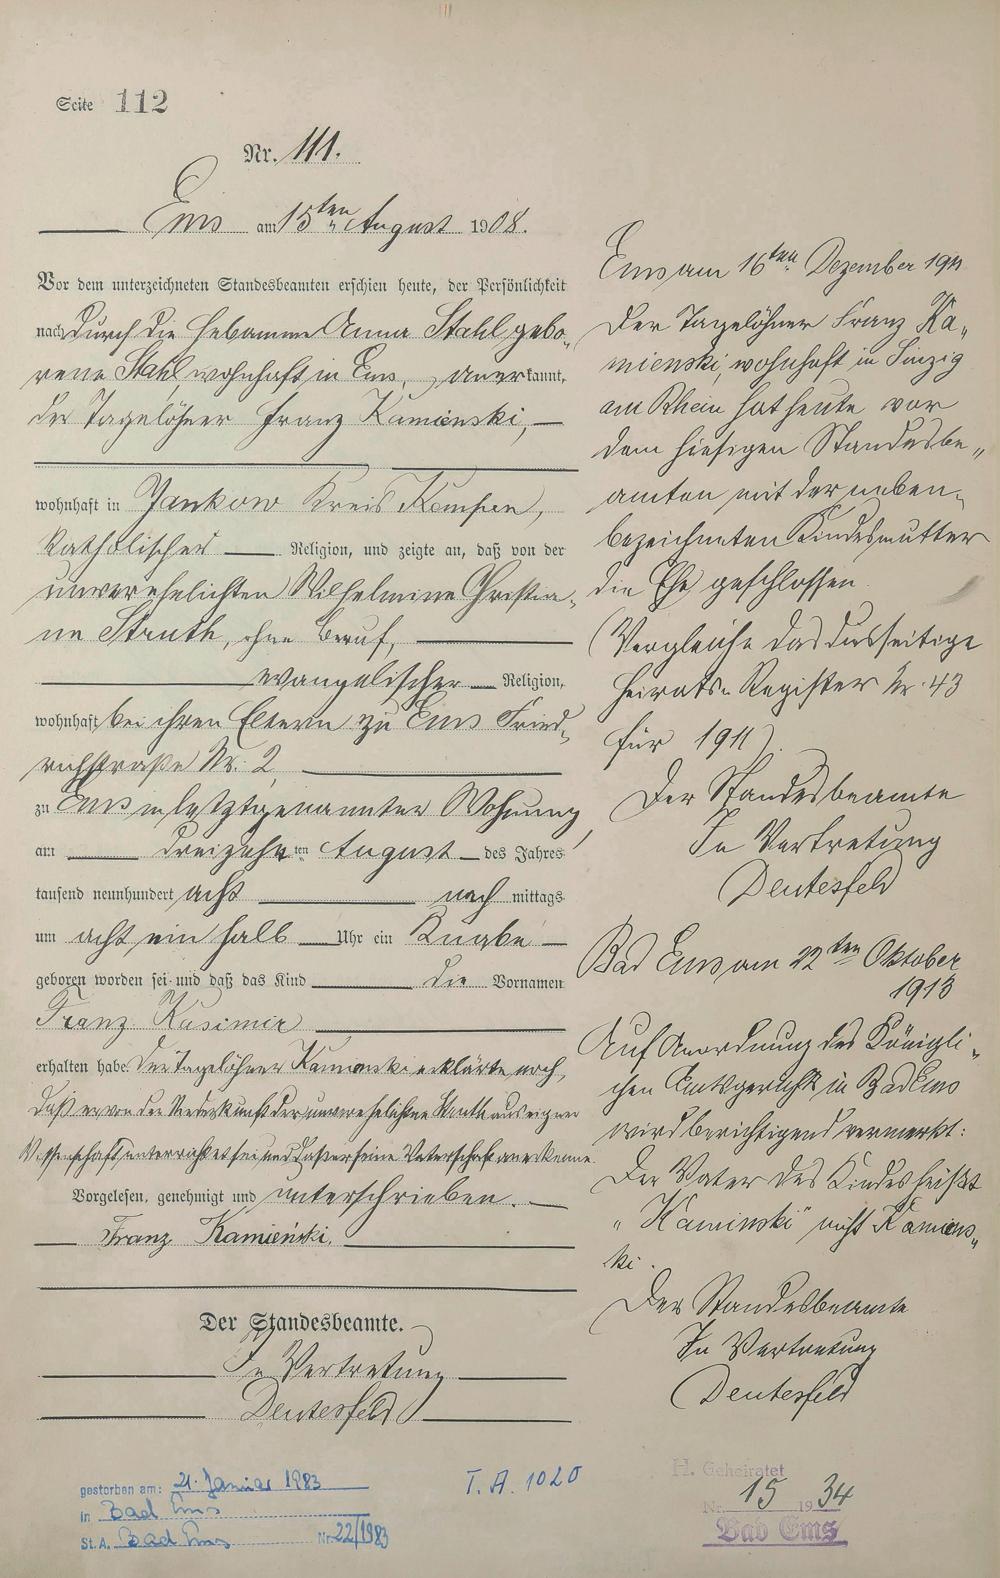 Seite 112
Nr. 111.
Ems am 15ten August 1908.
Vor dem unterzeichneten Standesbeamten erschien heute, der Persönlichkeit
nach durch die Hebamme Anna Stahl gebo„
rene Stahl, wohnhaft in Ems, anerkannt,
der Tagelöhner Franz Kamienski,
wohnhaft in Jankow Kreis Kempen,
katholischer Religion, und zeigte an, daß von der
unverehelichten Wilhelmine Christia„
ne Struth, ohne Beruf,
evangelischer Religion,
wohnhaft bei ihren Eltern zu Ems Fried„
richstraße Nr. 2,
zu Ems in letztgenannter Wohnung,
am dreizehnten August des Jahres
tausend neunhundert acht nach mittags
um acht ein halb Uhr ein Knabe
geboren worden sei und daß das Kind die Vornamen
Franz Kasimir
erhalten habe. Der Tagelöhner Kamienski erklärte noch,
daß er von der Niederkunft der unverehelichten Struth aus eigner
Wissenschaft unterrichtet sei und daß er seine Vaterschaft anerkenne.
Vorgelesen, genehmigt und unterschrieben.
Franz Kamieński.
Der Standesbeamte.
In Vertretung
Deutesfeld
gestorben am: 21. Januar 1983
in Bad Ems
St. A. Bad Ems Nr. 22/1983
T. A. 1020
Ems am 16ten Dezember 1911
Der Tagelöhner Franz Ka„
mienski, wohnhaft in Sinzig
am Rhein hat heute vor
dem hiesigen Standesbe„
amten mit der neben„
bezeichneten Kindesmutter
die Ehe geschlossen.
(Vergleiche das diesseitige
Heirats-Register Nr. 43
für 1911).
Der Standesbeamte
In Vertretung
Deutesfeld
Bad Ems am 22ten Oktober
1913
Auf Anordnung des Königli„
chen Amtsgerichts in Bad Ems
wird berichtigend vermerkt:
Der Vater des Kindes heißt
„Kaminski" nicht Kamiens„
ki.
Der Standesbeamte
In Vertretung
Deutesfeld
H. Geheiratet
Nr. 15 1934
Bad Ems